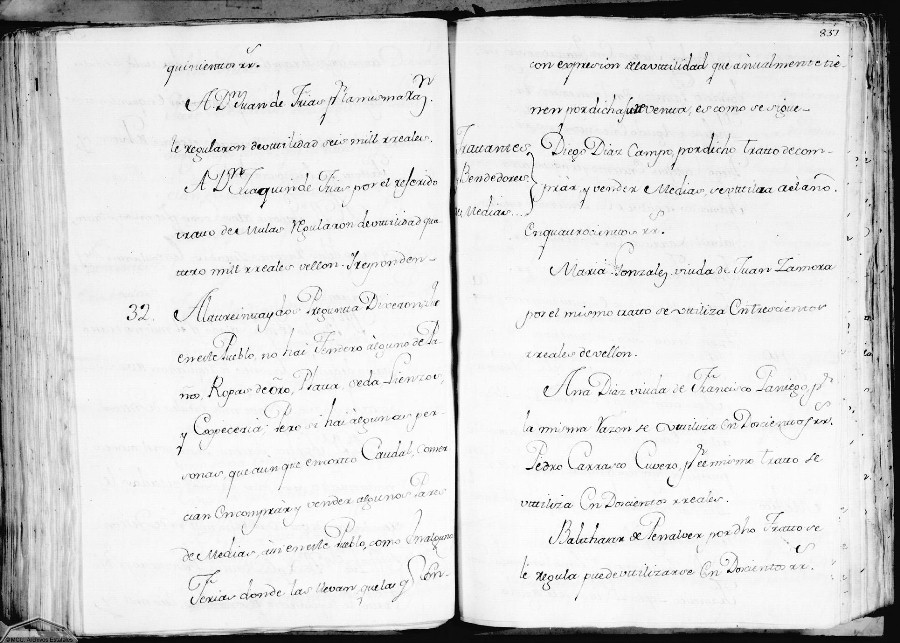 quinientos rr.s
A D.n Juan de Frias p.r la misma Razn.
le regularon de utilidad seis mill rreales.
A D.n Joaquin de Frias por el referido
tratto de Mulas Regularon de uttilidad qua
ttro mill rreales vellon. Y responden
32. A la treinta y dos Pregunta Dixeron, que
en este Pueblo, no hai Tendero alguno de Pa
ños, Ropas de Oro, Platta, seda, Lienzos,
y Especeria; Pero si hai algunas per-
sonas, que aunque en cortto Caudal, comer
cian en comprar y vender algunos Pares
de Medias, asi en este Pueblo, como En algunas
Ferias donde las llevan, que las q.e Son.
851
con expresion de la uttilidad que anualmente tie-
nen por dicha venta, es como se sigue
Trattantes
y Bendedores
de Medias...
Diego Diaz Campo, por dicho tratto de com-
prar, y vender Medias, se uttiliza al año.
En quatrocientos rr.s
Maria Gonzalez, viuda de Juan Zamora
por el mismo tratto se uttiliza En trescientos
rreales de vellon.
Ana Diaz viuda de Francisco Paniego, p.r
la misma Razon se uttiliza En Doscientos rr.s
Pedro Carrasco Cuvero, p.r el mismo tratto se
uttiliza En Doscientos rreales.
Balthasar de Peñalver por dho Tratto se
le regula puede uttilizarse En Doscientos rr.s
©MCD. Archivos Estatales